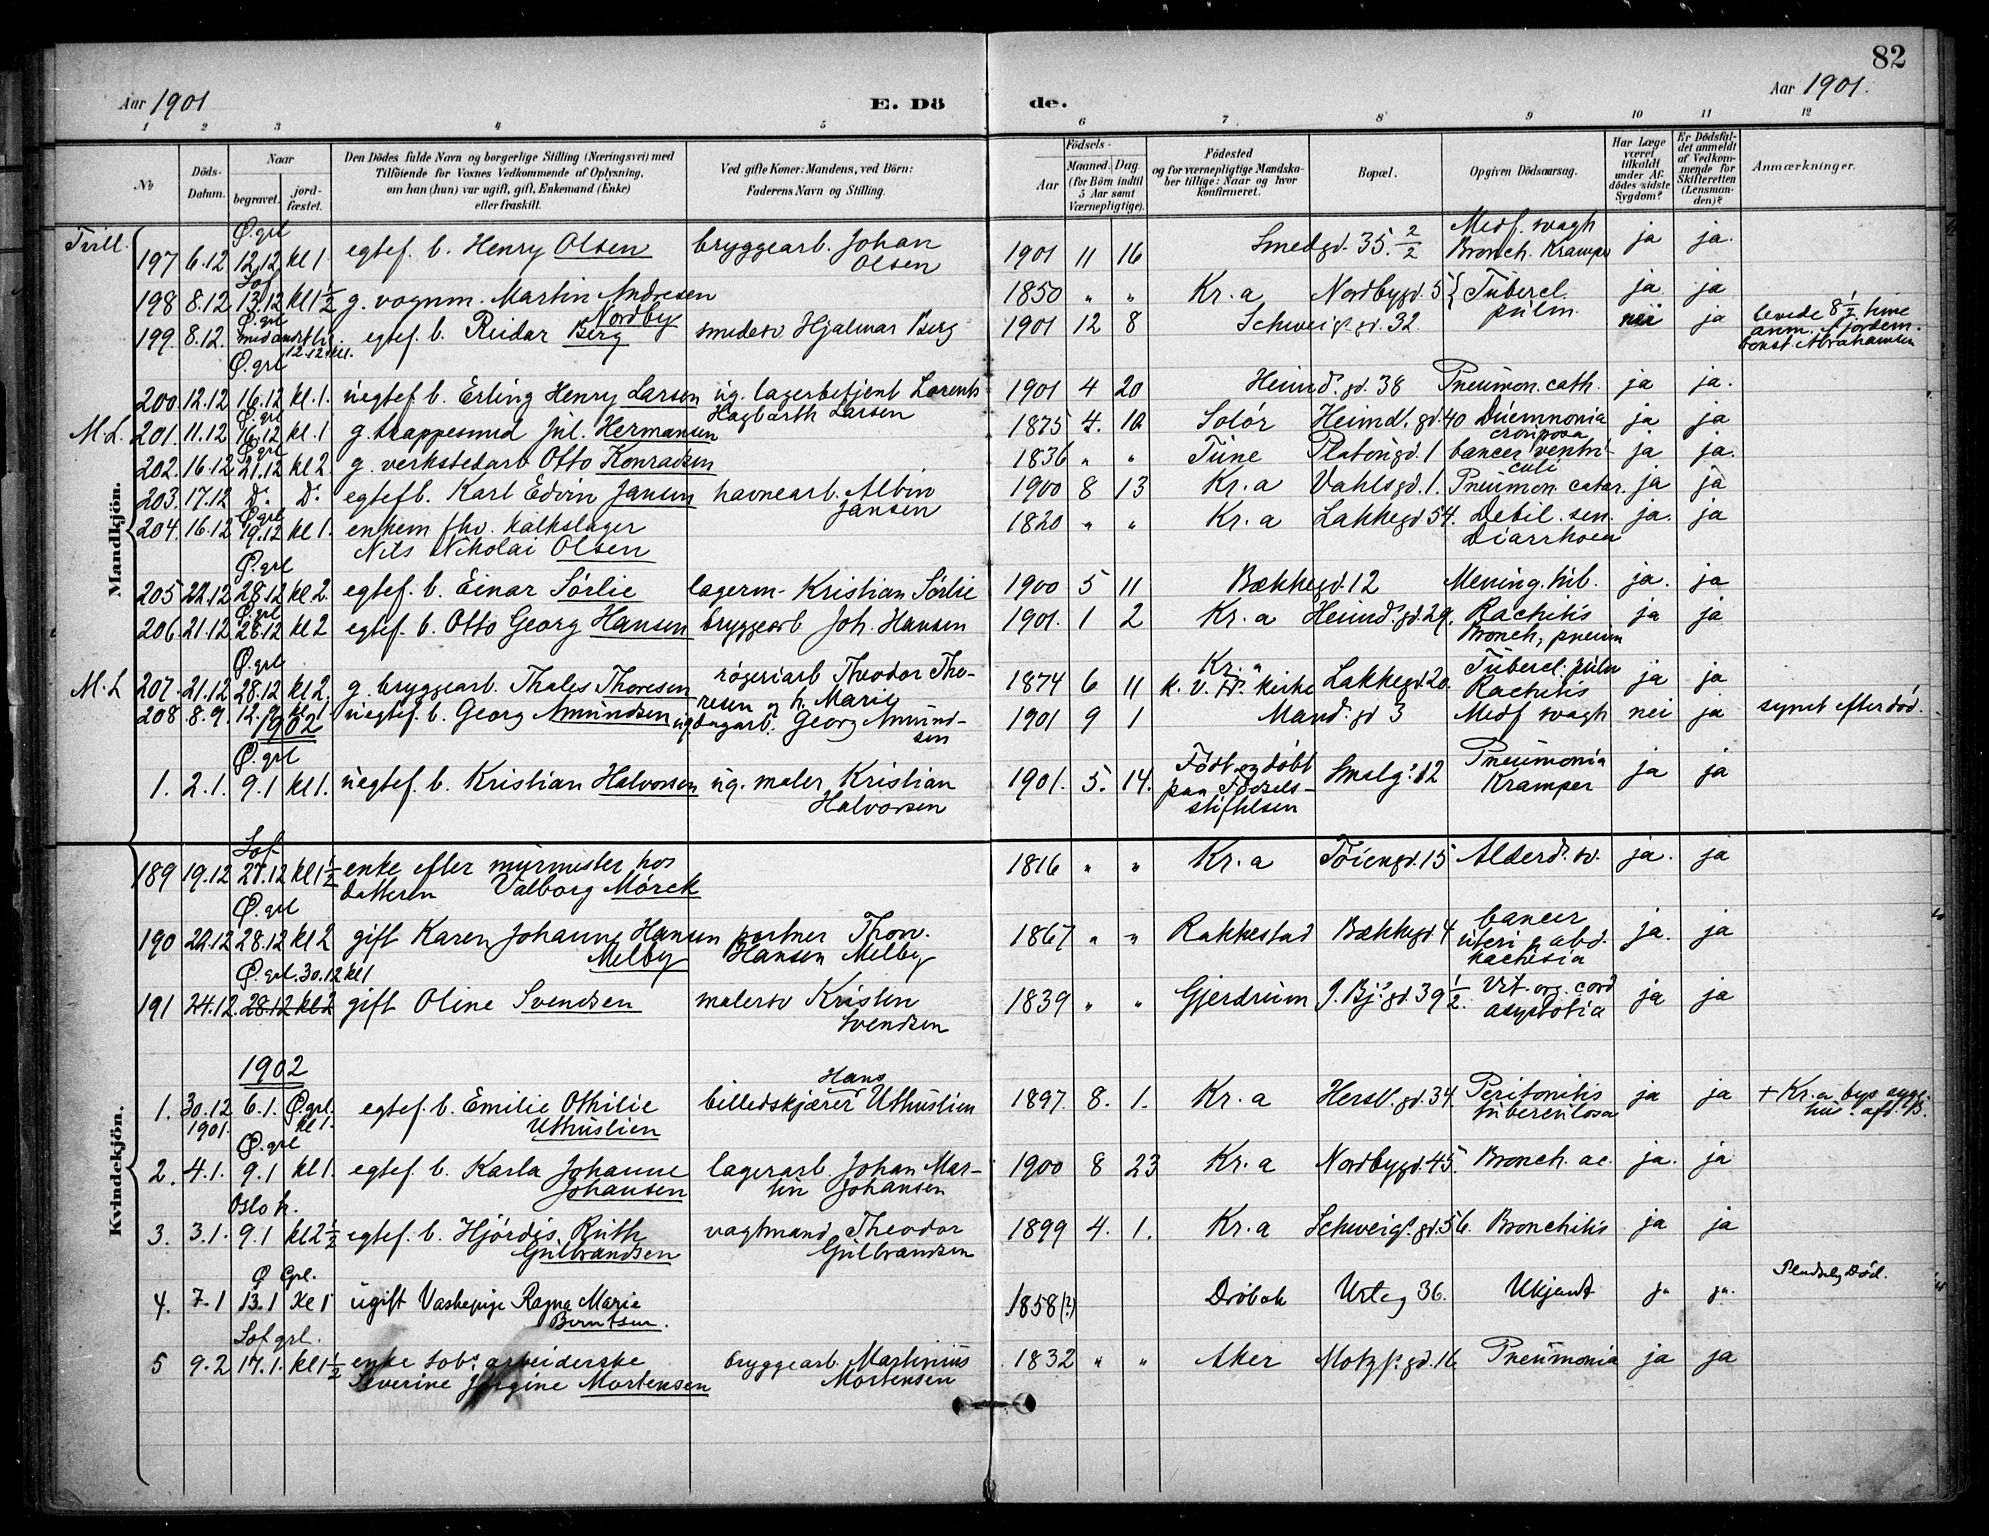 82
Aar 1901
E. Dö
de.
Aar 1901.
1 2 3 4 5 6 7 8 9 10 11 12
No
Döds-Datum.
Naar
begravet. jord-fæstet.
Den Dödes fulde Navn og borgerlige Stilling (Næringsvei) med
Tilföiende for Voxnes Vedkommende af Oplysning,
om han (hun) var ugift, gift, Enkemand (Enke)
eller fraskilt.
Ved gifte Koner: Mandens, ved Börn:
Faderens Navn og Stilling.
Födsels-
Aar Maaned. Dag
(for Börn indtil
5 Aar samt
Værnepligtige).
Födested
og for værnepligtige Mandska-
ber tillige: Naar og hvor
konfirmeret.
Bopæl.
Opgiven Dödsaarsag.
Har Læge
været
tilkaldt
under Af-
dödes sidste
Sygdom?
Er Dödsfal-
det anmeldt
af Vedkom-
mende for
Skifteretten
(Lensman-
den)?
Anmærkninger.
Mandkjön.
Tvill.
Ø. grl
197 6.12 12.12 kl 1. egtef. b. Henry Olsen bryggearb. Johan Olsen 1901 11 16 Smedgd. 35 2/2 Medf. svagh Bronch. Kramper ja ja.
Sof.
198 8.12 13.12 kl 1½ g. vognm. Martin Andresen Nordby 1850 " " Kr.a Nordbygd. 5 Tubercl. pulm. ja ja
Ø. grl
199. 8.12. 12.12 kl. egtef. b. Reidar Berg smedesv Hjalmar Berg 1901 12 8 Schweig. gd. 32. nei ja levede 8½ time anm. Abrahamsen
Ø. grl
200 12.12 16.12 kl. 1. uegtef b. Erling Henry Larsen ug. lagerbetjent Lorents Hagbarth Larsen 1901 4 20 Heimd. gd. 38 Pneumon. cath. ja ja.
M.L. Ø. grl
201. 11.12 16.12 kl. 1 g. trappesmed Jul. Hermansen 1875 4. 10 Solør Heimdl. gd. 40 ja ja
Ø. grl
202. 16.12 21.12 kl 2. g. verkstedarb Otto Konradsen 1836 " " Tune Platougd. 1 cancer ventriculi ja ja.
203. 17.12 D. D. egtef b. Karl Edvin Jansen havnearb. Albin Jansen 1900 8 13 Kr. a Vahlsgd. 1. Pneumon. catar. ja ja
Ø. grl
204. 16.12 19.12 kl 1. enkem fhv. kalkslager Nils Nikolai Olsen 1820 " " Kr. a Lakkegd 54. Debil. sen. Diarrhoea ja. ja
Ø. grl
205 22.12 28.12 kl 2. egtef. b. Einar Sørlie lagerm. Kristian Sørlie 1900 5 11 Bækkegd. 12 Mening. tub. ja. ja
Ø. grl
206 21.12 28.12 kl 2 egtef. b. Otto Georg Hansen bryggearb Joh. Hansen 1901. 1 2 Kr. a Heimd. gd. 29. Rachitis Bronch, pneum ja ja
M.L Ø. grl
207. 21.12 28.12 kl 2. g. bryggearb. Thales Thoresen røgeriarb Theodor Thoresen og h. Marie 1874 6 11 Kr. a Lakkegd 20. Tubercl. pulm Rachitis ja ja
208. 8.9. 12.9. kl 1. uegtef. b. Georg Amundsen Georg Amundsen 1901 9 1 Mand. gd 3 Medf svagh nei ja synet efter død.
1902
Ø. grl
1. 2.1. 9.1 kl 1. uegtef. b. Kristian Halvorsen ug. maler Kristian Halvorsen 1901. 5. 14. Født og døbt paa Fødselsstiftelsen Smalg. 12 Pneumonia Kramper ja ja
Kvindekjön.
Sof.
189 19.12 27.12 kl 1½ enke efter murmester hos datteren Valborg Mörck 1816 " " Kr. a Tøiengd. 15 Alderd. sv. ja. ja
Ø. grl
190 22.12 28.12 kl 2 gift Karen Johanne Hansen Melby portner Thorv. Hansen Melby 1867 " " Rakkestad Bækkegd 4 Cancer uteri & abd. kachexia ja. ja
Ø. grl. 30.12 kl 1
191 24.12. 28.12 kl 2 gift Oline Svendsen malersv Kristen Svendsen 1839 " " Gjerdrum J. Bj. gd. 39 ½. Vit. org. cord asystolia ja ja
1902
1. 30.12 1901. 6.1. Ø grl. kl 1. egtef. b. Emilie Othilie Uthuslien billedskjærer Hans Uthuslien 1897. 8. 1. Kr. a Hersl. gd. 34. Peritonitis tuberculosa ja ja + Kr. a bys syge hus afd. B.
Ø. grl
2. 4.1. 9.1 kl 1. egtef. b. Karla Johanne Johansen lagerarb. Johan Martin Johansen 1900 8 23 Kr. a Nordbygd. 45. Bronch. ac. ja. ja
Oslo k.
3. 3.1. 9.1 kl 2½ egtef. b. Hjørdis Ruth Gulbrandsen vagtmand Theodor Gulbrandsen 1899 4. 1. Kr. a Schweig. gd. 56. Bronchitis ja ja
Ø Grl.
4. 7.1 13.1 Kl 1 ugift Vaskepige Ragna Marie Berntsen. 1858 (?) Drøbak Urteg 36. Ukjendt ja ja. Pludselig Død.
Sof grl.
5 9.2 17.1. kl 1½ enke tobs arbeiderske Severine Jørgine Mortensen bryggearb. Martinius Mortensen 1832 " " Aker Motzf. gd. 16 Pneumonia ja ja